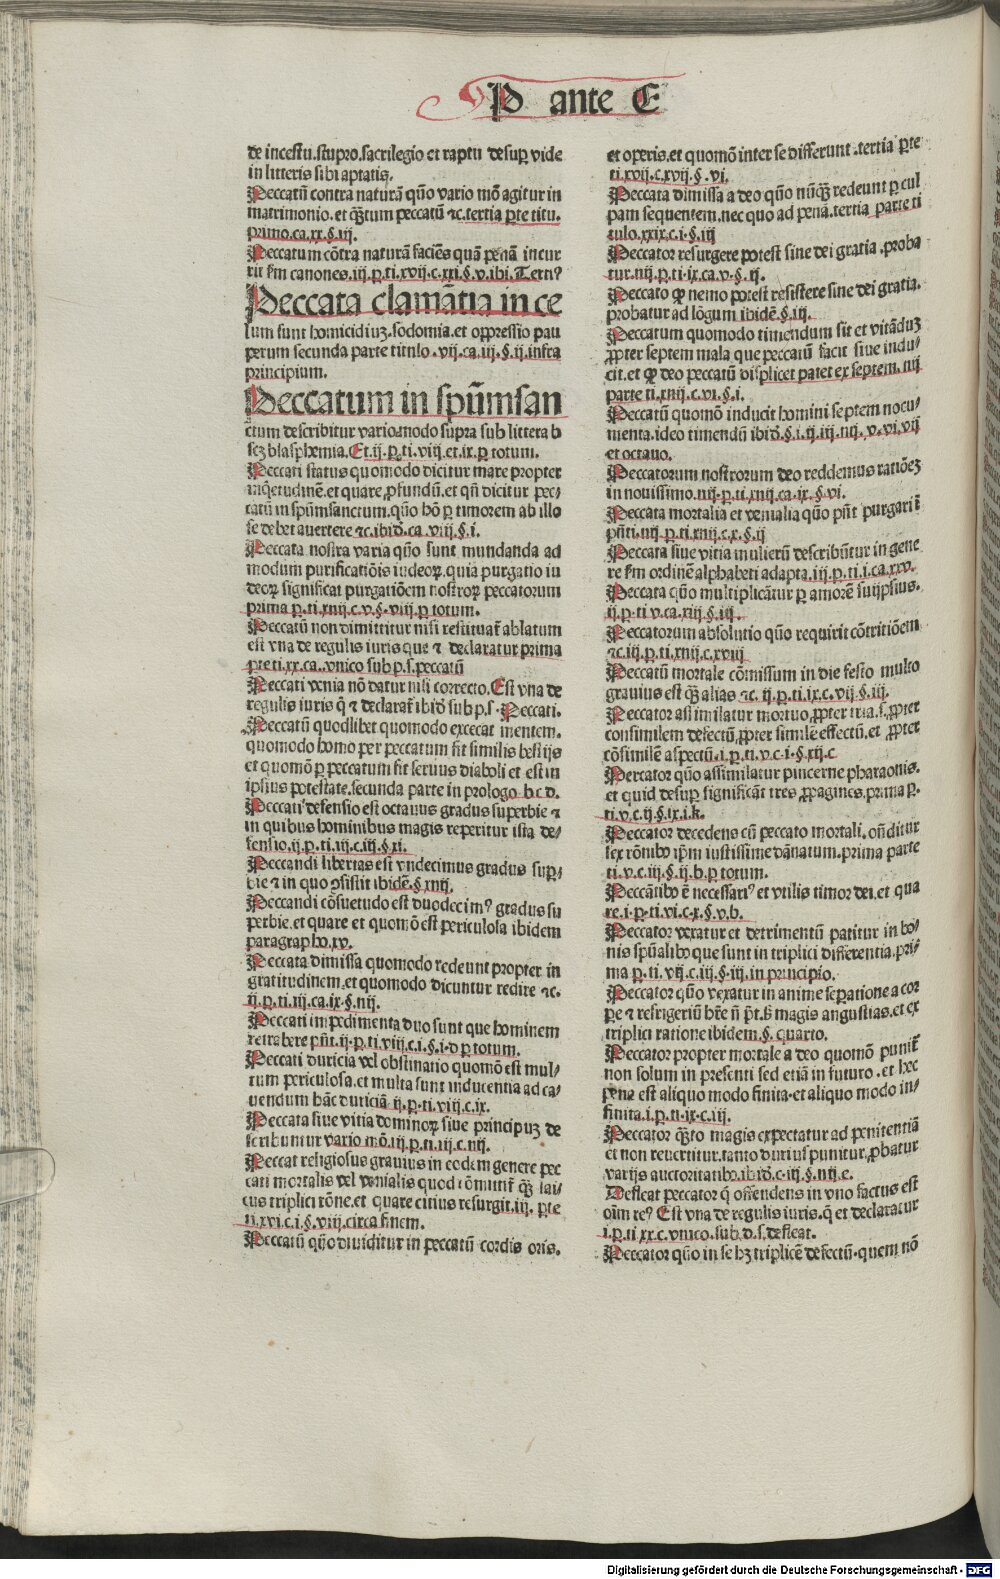 P ante E
de incestu.stupro.sacrilegio et raptu desuꝑ vide
in litteris sibi aptatis.
Peccatū contra naturā quō vario mō agitur in
matrimonio.et qͣ̄tum peccatū ⁊c.tertia ꝑte titu.
primo.ca.xx.§.iij.
Peccatum cōtra naturā faciēs quā penā incur
rit ẜm canones.iij.ꝑ.ti.xvij.c.xxi.§.v.ibi.Tertiꝰ
Peccata clamātia in ce
lum sunt homicidiuꝫ.sodomia.et oppressio pau
perum secunda parte titulo.vij.ca.iij.§.ij.infra
principium.
Peccatum in spūmsan
ctum describitur vario modo supra sub littera b
scꝫ blasphemia.Et.ij.ꝑ.ti.viij.et.ix.ꝑ totum.
Peccati status quomodo dicitur mare propter
inq̇etudinē.et quare ꝓfundū.et qn̄ dicitur pec⸗
catū in spūmsanctum.quō hō ꝑ timorem ab illo
se debet auertere ⁊c.ibid̄.ca.viij.§.i.
Peccata nostra varia quō sunt mundanda ad
modum purificatiōis iudeoꝝ.quia purgatio iu
deoꝝ significat purgatiōem nostroꝝ peccatorum
prima ꝑ.ti.xiiij.c.v.§.viij.ꝑ totum.
Peccatū non dimittitur nisi restituat̄ ablatum
est vna de regulis iuris que ⁊ declaratur prima
ꝑte ti.xx.ca.vnico sub p.s.peccatū
Peccati venia nō datur nisi correcto.Est vna de
regulis iuris q̄ ⁊ declarat̄ ibid̄ sub p.s.Peccati.
Peccatū quodlibet quomodo excecat mentem.
quomodo homo per peccatum fit similis bestijs
et quomō ꝑ peccatum fit seruus diaboli et est in
ipsius potestate.secunda parte in prologo.b.c.d.
Peccati defensio est octauus gradus superbie ⁊
in quibus hominibus magis reperitur ista de⸗
fensio.ij.ꝑ.ti.iij.c.iij.§.xi.
Peccandi libertas est vndecimus gradus suꝑ⸗
bie ⁊ in quo ↄsistit ibidē.§.xiiij.
Peccandi cōsuetudo est duodecimꝰ gradus su
perbie.et quare et quomō est periculosa ibidem
paragrapho.xv.
Peccata dimissa quomodo redeunt propter in
gratitudinem.et quomodo dicuntur redire ⁊c.
ij.ꝑ.ti.xij.ca.ix.§.iiij.
Peccati impedimenta duo sunt que hominem
retrahere pn̄t.ij.ꝑ.ti.viij.c.i.§.i.d ꝑ totum.
Peccati duricia vel obstinatio quomō est mul⸗
tum periculosa.et multa sunt inducentia ad ca⸗
uendum hāc duriciā ij.ꝑ.ti.viij.c.ix.
Peccata siue vitia dominoꝝ siue principuꝫ de
scribuntur vario mō.iij.ꝑ.ti.iij.c.iiij.
Peccat religiosus grauius in eodem genere pec
cati mortalis vel venialis quod cōmittit qͣ̄ lai⸗
cus triplici rōne.et quare citius resurgit.iij. ꝑte
ti.xvi.c.i.§.viij.circa finem.
Peccatū quō diuiditur in peccatū cordis oris.
et operis.et quomō inter se differunt.tertia ꝑte
ti.xvij.c.xvij.§.vi.
Peccata dimissa a deo quō nūqͣ̄ redeunt ꝑ cul
pam sequentem.nec quo ad penā.tertia parte ti
tulo.xxix.c.i.§.iij
Peccator resurgere potest sine dei gratia.proba
tur.iiij.ꝑ.ti.ix.ca.v.§.ij.
Peccato ꝙ nemo potest resistere sine dei gratia.
probatur ad lōgum ibidē.§.iij.
Peccatum quomodo timendum sit et vitāduꝫ
ꝓpter septem mala que peccatū facit siue indu⸗
cit.et ꝙ deo peccatū displicet patet ex septem.iiij
parte ti.xiiij.c.vi.§.i.
Peccatū quomō inducit homini septem nocu⸗
menta.ideo timendū ibid̄.§.i.ij.iij.iiij.v.vi.vij
et octauo.
Peccatorum nostrorum deo reddemus ratiōeꝫ
in nouissimo.iiij.ꝑ.ti.xiiij.ca.ix.§.vi.
Peccata mortalia et venialia quō pn̄t purgari ī
pn̄ti.iiij.ꝑ.ti.xiiij.c.x.§.ij
Peccata siue vitia mulierū describūtur in gene
re ẜm ordinē alphabeti adapta.iij.ꝑ.ti.i.ca.xxv.
Peccata quō multiplicātur ꝑ amorē suijpsius.
ij.ꝑ.ti v.ca.xiij.§.iij.
Peccatorum absolutio quō requirit cōtritiōem
⁊c.iij.ꝑ.ti.xiiij.c.xviij
Peccatū mortale cōmissum in die festo multo
grauius est qͣ̄ alias ⁊c. ij.ꝑ.ti.ix.c.vij.§.iij.
Peccator assimilatur mortuo.ꝓpter tria.s.ꝓpter
consimilem defectū.ꝓpter similē effectū.et ꝓpter
cōsimilē aspectū.i.ꝑ.ti.v.c.i.§.xij.c
Peccator quō assimilatur pincerne pharaonis.
et quid desuꝑ significāt tres ꝓpagines.prima ꝑ.
ti.v.c.ij.§.ix.i.k.
Peccator decedens cū peccato mortali.on̄ditur
sex rōnibꝰ ip̄m iustissime dānatum.prima parte
ti.v.c.iij.§.ij.b.ꝑ totum.
Peccātibꝰ ē necessariꝰ et vtilis timor dei.et qua
re.i.ꝑ.ti.vi.c.x.§.v.b.
Peccator vexatur et detrimentū patitur in bo⸗
nis spūalibꝰ que sunt in triplici differentia.pri⸗
ma ꝑ.ti.vij.c.iij.§.iij.in principio.
Peccator quō vexatur in anime seꝑatione a cor
pe ⁊ refrigeriū hr̄e nō p̄t.sꝫ magis angustias.et ex
triplici ratione ibidem.§.quarto.
Peccator propter mortale a deo quomō punit̄
non solum in presenti sed etiā in futuro.et hec
pena est aliquo modo finita.et aliquo modo in⸗
finita.i.ꝑ.ti.ix.c.iij.
Peccator qͣ̄to magis expectatur ad penitentiā
et non reuertitur.tanto duriꝰ punitur.ꝓbatur
varijs auctoritatibꝰ.ibid̄.c.iij.§.iiij.c.
Defleat peccator q̄ offendens in vno factus est
oīm reꝰ.Est vna de regulis iuris.q̄ et declaratur
i.ꝑ.ti.xx.c.vnico.sub.d.s.defleat.
Peccator quō in se hꝫ triplicē defectū.quem nō
Digitalisierung gefördert durch die Deutsche Forschungsgemeinschaft - DFG